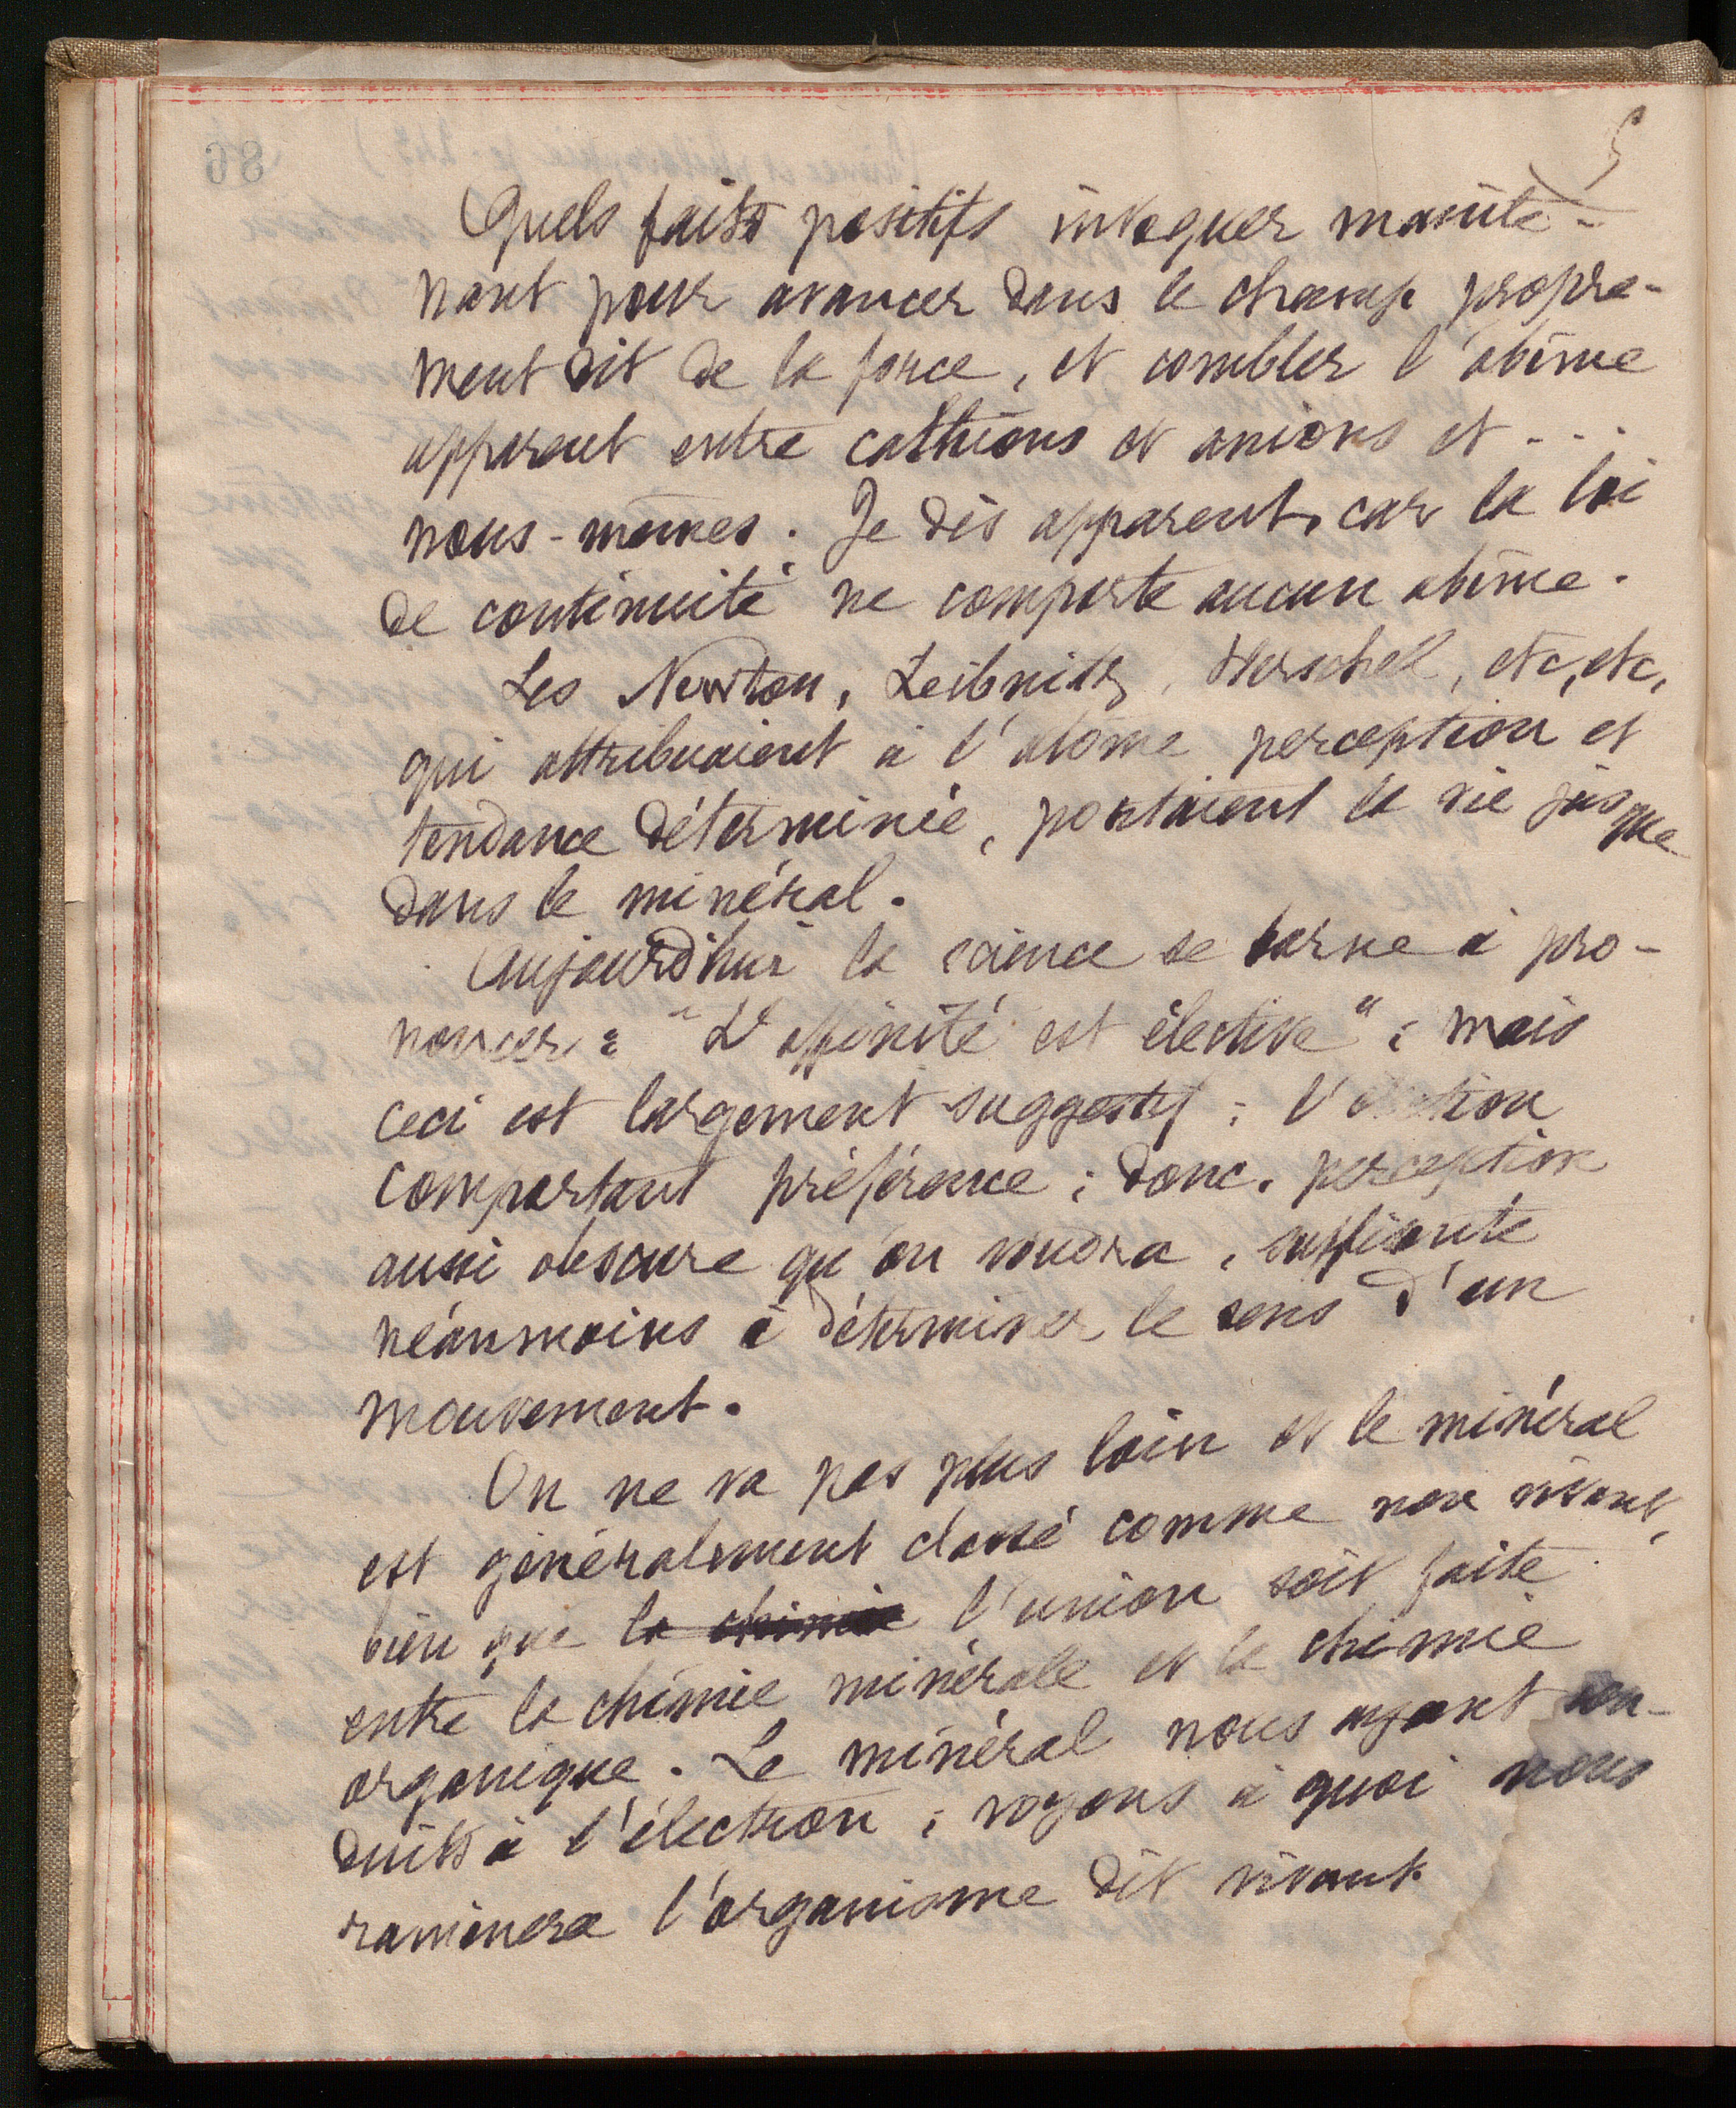 5
Quels faits positifs invoquer mainte-
nant pour avancer dans le champ propre-
ment dit de la force, et combler l'abîme
apparent entre cathions et anions et ...
nous-mêmes. Je dis apparent, car la loi
de continuité ne comporte aucun abîme.
Les Newton, Leibnitz, Herschel, etc, etc,
qui attribuaient à l'atome perception et
tendance déterminée, portaient la vie jusque
dans le minéral.
Aujourd'hui la science se borne à pro-
noncer : "L'affinité est élective" ; mais
ceci est largement suggestif ; l'élection
comportant préférence ; donc, perception
aussi obscure qu'on voudra, suffisante
néanmoins à déterminer le sens d'un
mouvement.
On ne va pas plus loin et le minéral
est généralement classé comme non vivant,
bien que la chimie l'union soit faite
entre la chimie minérale et la chimie
organique. Le minéral nous ayant con-
duits à l'élection ; voyons à quoi nous
ramènera l'organisme dit vivant.